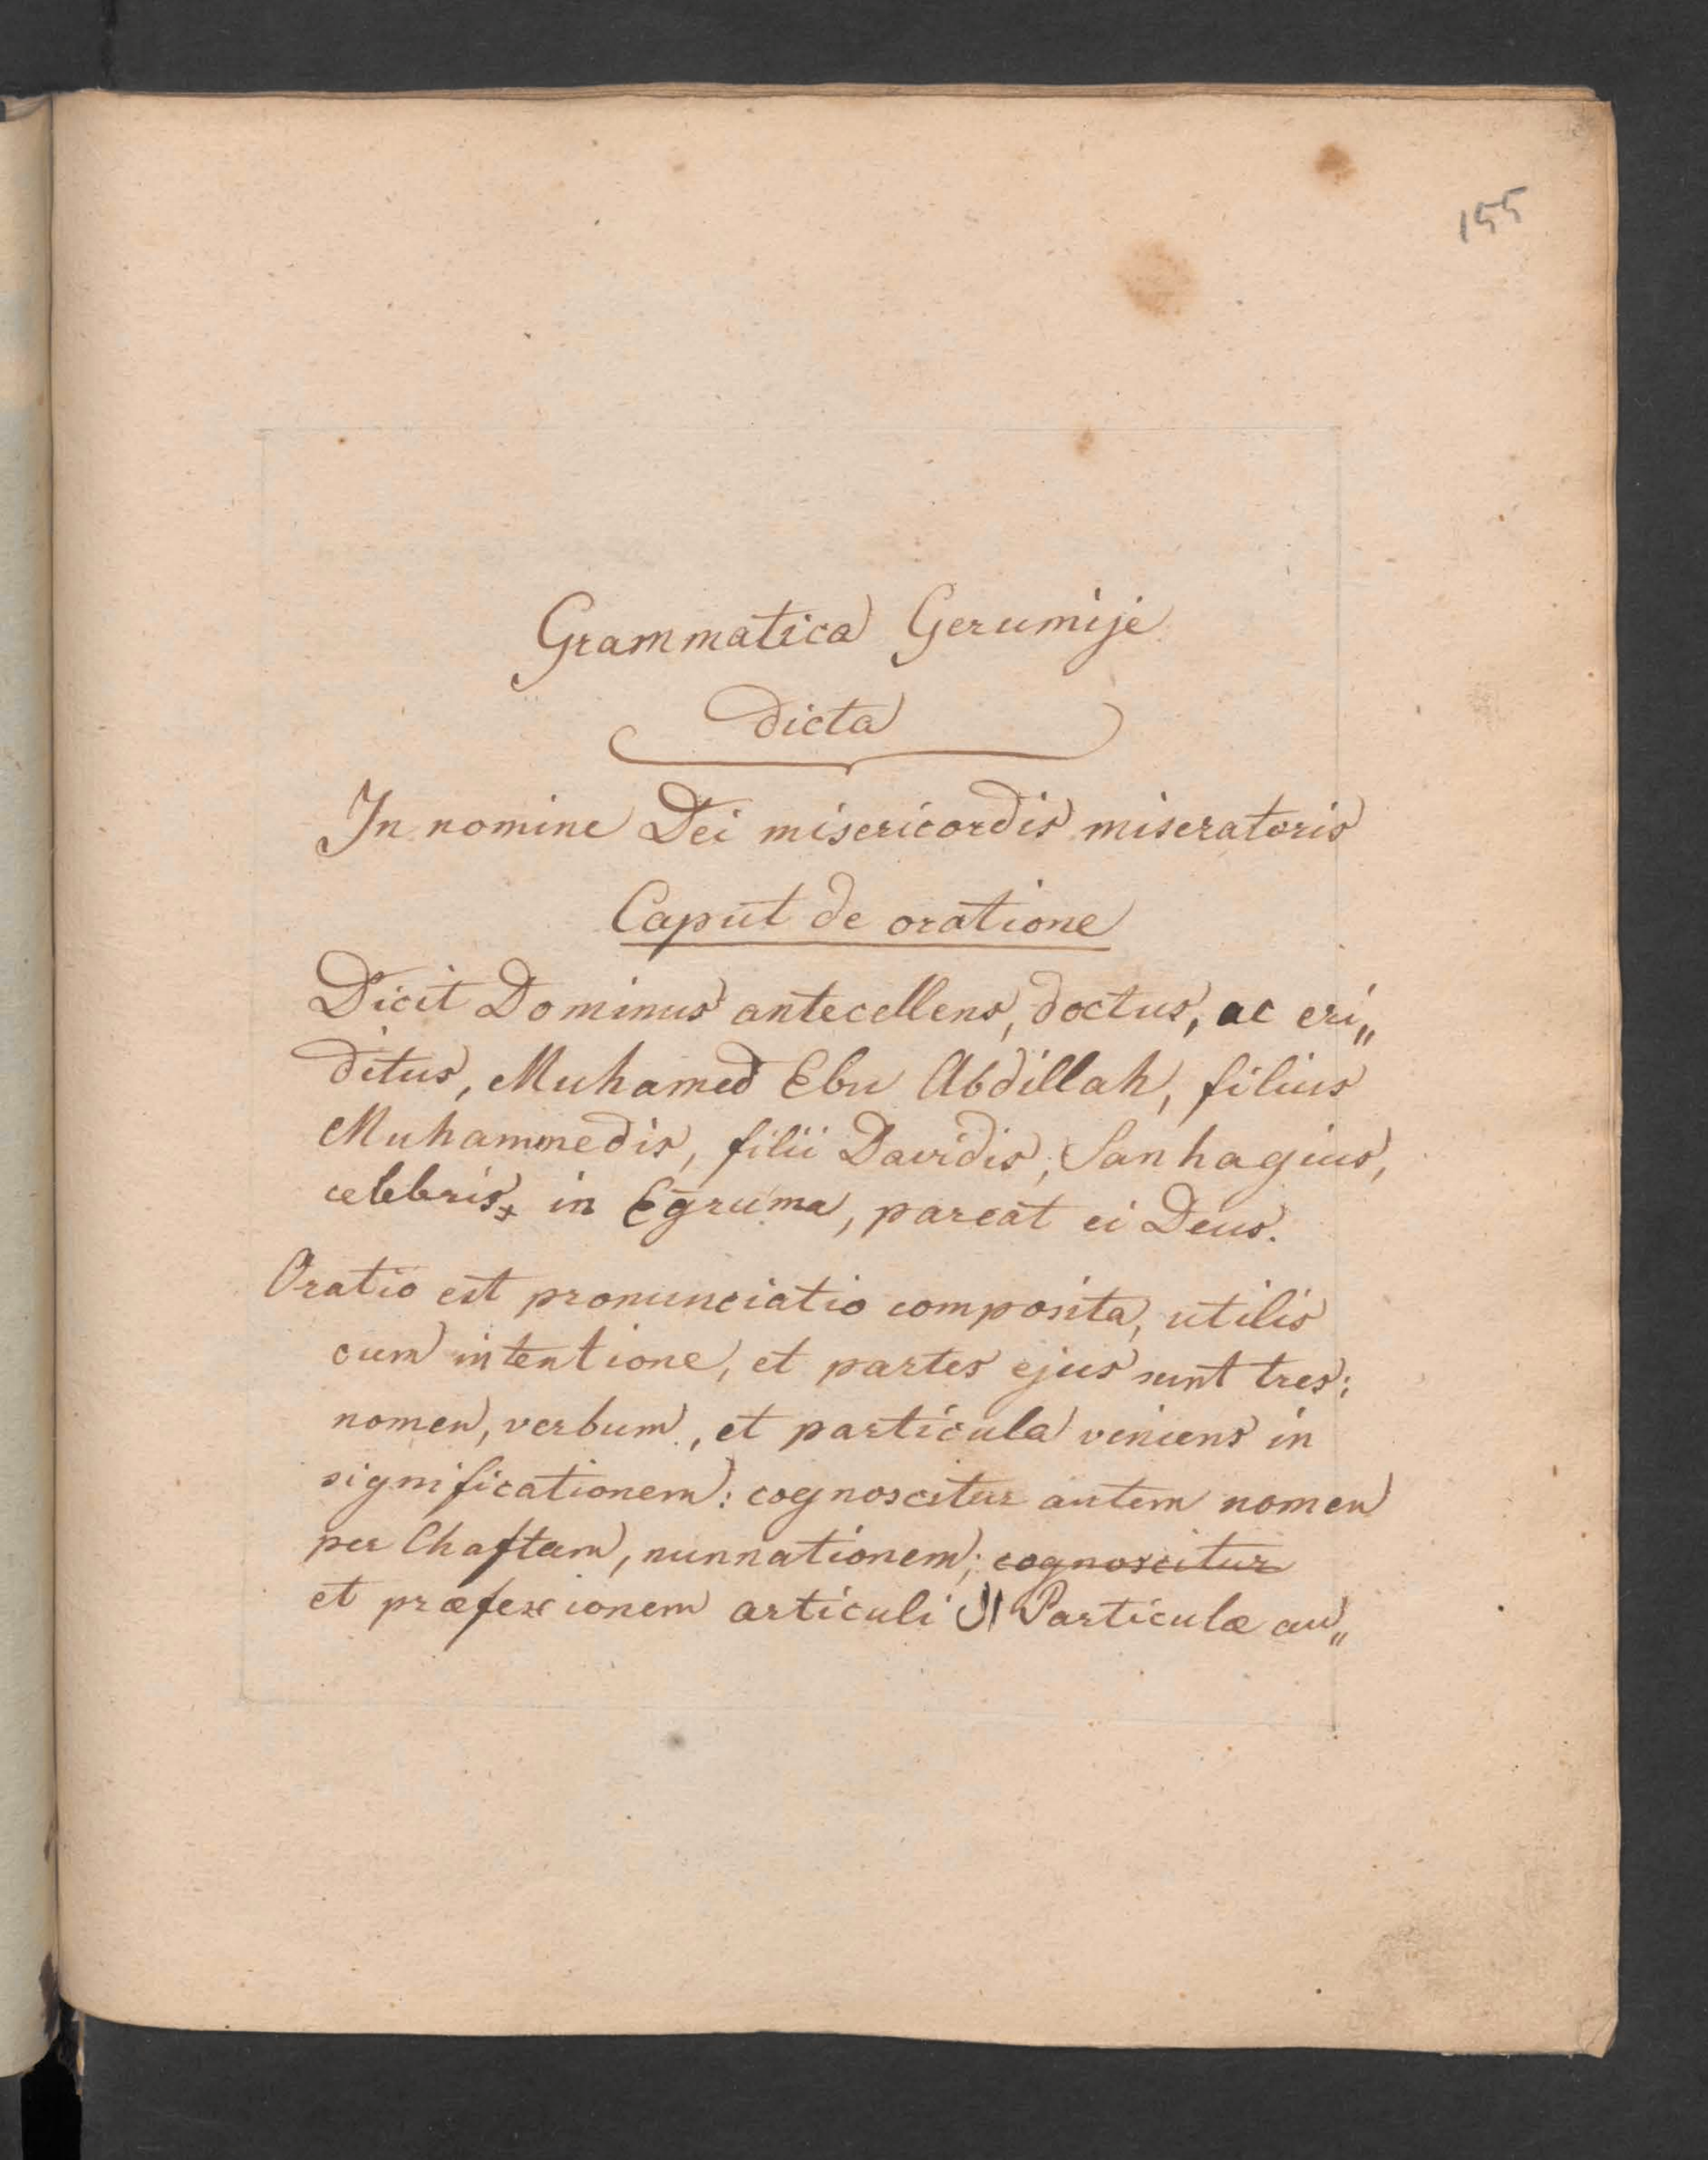 155
Grammatica Gerumije
dicta
In nomine Dei misericordis miseratoris
Caput de oratione
Dicit Dominus antecellens, doctus, ac eri„
ditus, Muhamed Ebu Abdillah, filius
Muhammedis, filii Davidis, Sanhagius,
celebris in Egruma, pareat ei Deus.
Oratio est pronunciatio composita, utilis
cum intentione, et partes ejus sunt tres:
nomen, verbum, et particula veniens in
significationem: cognoscitur autem nomen
per Chaftam, nunnationem; cognoscitur
et præfexionem articuli ال Particulæ au„